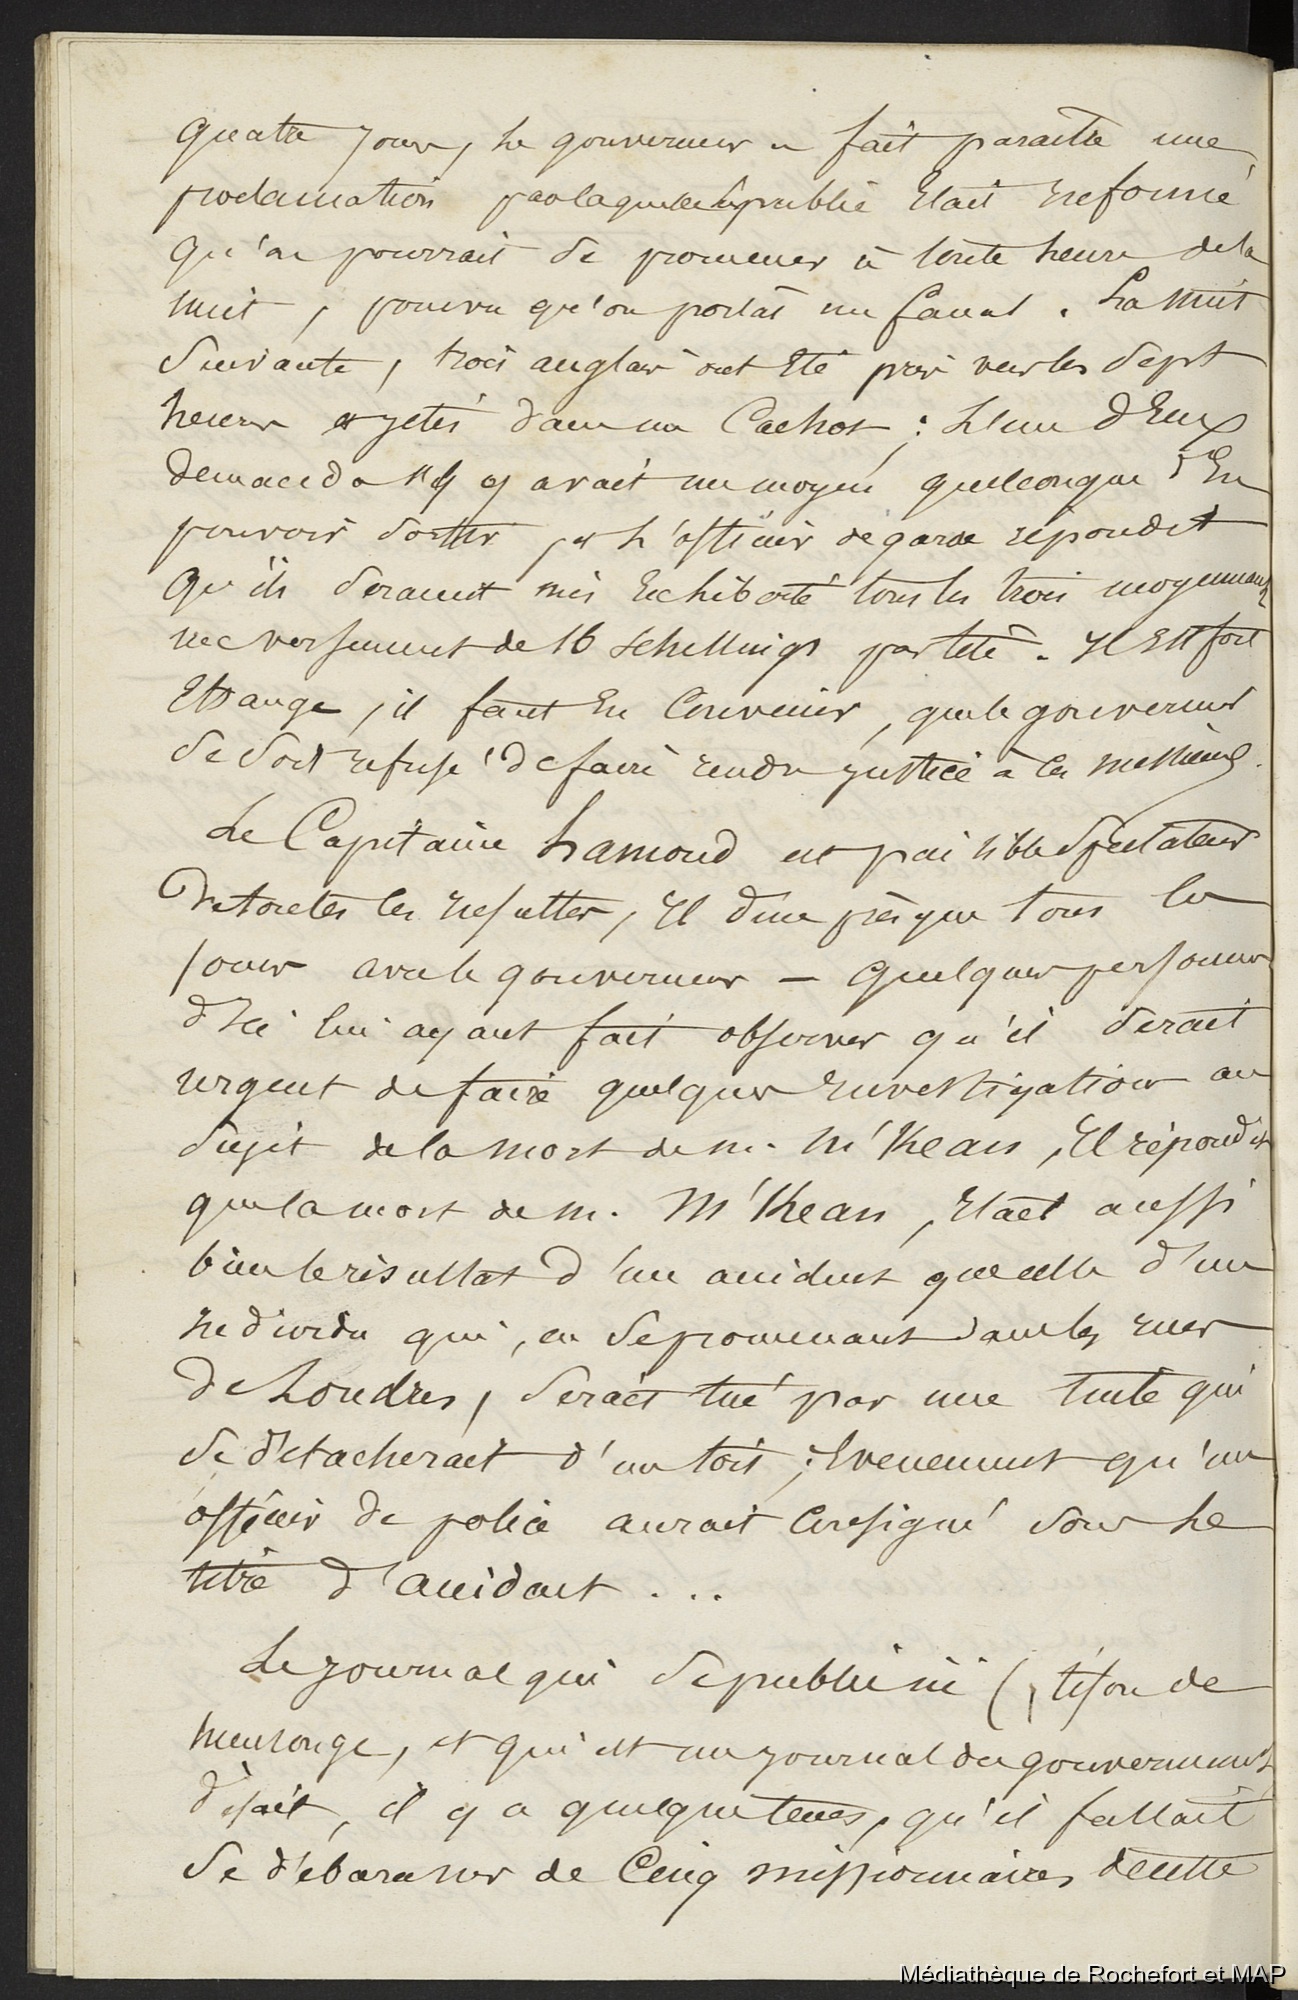 quatre jours, le gouverneur a fait paraître une
proclamation par laquelle le public était informé
qu'on pourrait se promener à toute heure de la
nuit, pourvu qu'on portât un fanal. La nuit
suivante, trois anglais ont été pris vers les sept
heures et jetés dans un cachot; l'un d'eux
demanda s'il y avait un moyen quelconque d'en
pouvoir sortir, et l'officier de garde répondit
qu'ils seraient mis en liberté tous les trois moyennant
un versement de 16 schellings par tête. Il est fort
étrange, il faut en convenir, que le gouverneur
se soit refusé de faire rendre justice à ces messieurs.
Le Capitaine Lamond est paisible spectateur
de toutes ces insultes, il dine presque tous les
jours avec le gouverneur — quelques personnes
d'ici lui ayant fait observer qu'il serait
urgent de faire quelques investigations au
sujet de la mort de m. M'Kean, il répondit
que la mort de m. M'Kean, était aussi
bien le résultat d'un accident que celle d'un
individu qui, en se promenant dans les rues
de Londres, serait tué par une tuile qui
se détacherait d'un toit; évenement qu'un
officier de police aurait consigné sous le
titre d'accident...
Le journal qui se publie ici (, tison de
mensonge, et qui est un journal du gouvernement,
disait, il y a quelque tems, qu'il fallait
se débarasser de cinq missionnaires de cette
Médiathèque de Rochefort et MAP